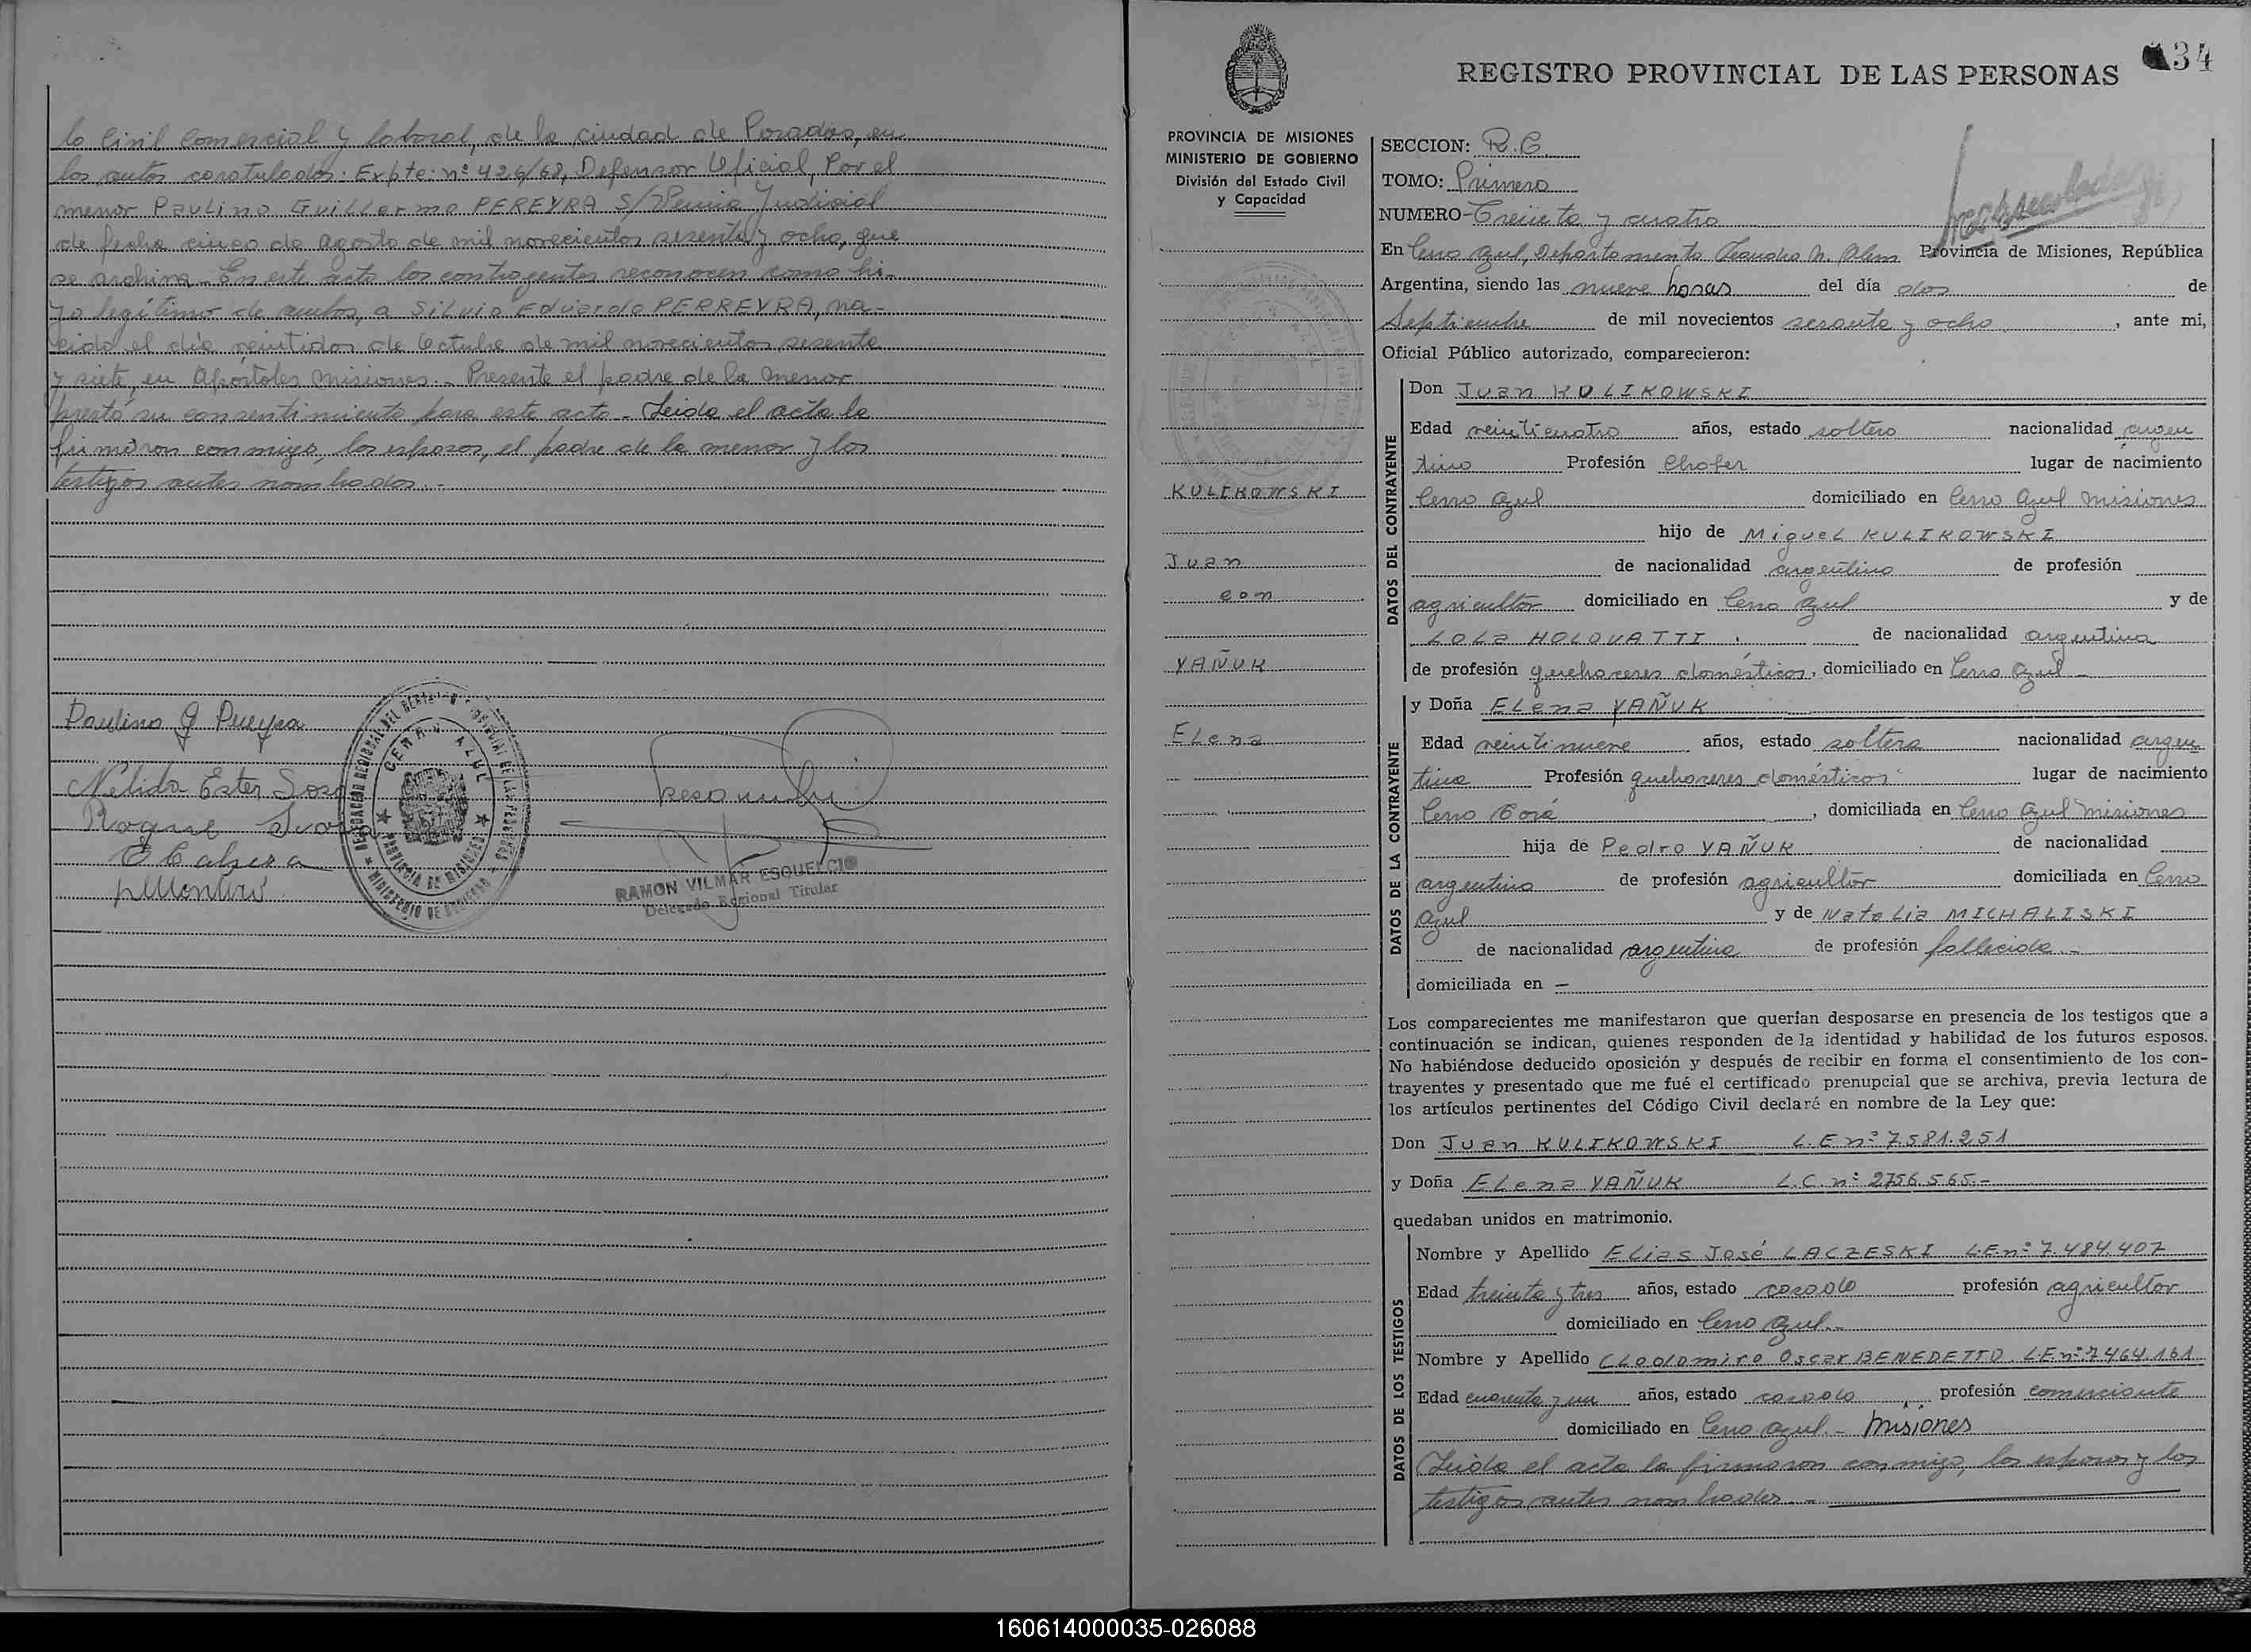 lo Civil Comercial y laboral, de la ciudad de Posadas, en
los autos caratulados: Expte: nº 426/68, Defensor Oficial, Por el
menor Paulino Guillermo PEREYRA S/Venia Judicial
de fecha cinco de Agosto de mil novecientos sesenta y ocho, que
se archiva._ En este acto los contrayentes reconocen como hi-
jo legítimo de ambos, a Silvio Eduardo PERREYRA, na-
cido el día veintidos de Octubre de mil novecientos sesenta
y siete, en Apóstoles Misiones._ Presente el padre de la menor
prestó su consentimiento para este acto._ Leida el acta la
firmaron conmigo, los esposos, el padre de la menor y los
testigos antes nombrados.-
Paulino G Pereyra
Nélida Ester Sosa
Roque Sosa
CERRO AZUL
PROVINCIA DE MISIONES
RAMON VILMAR ESQUELCIO
Delegado Regional Titular
34
REGISTRO PROVINCIAL DE LAS PERSONAS
PROVINCIA DE MISIONES
MINISTERIO DE GOBIERNO
División del Estado Civil
y Capacidad
KULIKOWSKI
Juan
con
YAÑUK
Elena
SECCION: R.C.
TOMO: Primero
NUMERO-Treinta y cuatro
En Cerro Azul, Departamento Leandro N. Alem Provincia de Misiones, República
Argentina, siendo las nueve horas del día dos de
Septiembre de mil novecientos sesenta y ocho, ante mi,
Oficial Público autorizado, comparecieron:
DATOS DEL CONTRAYENTE
Don Juan KULIKOWSKI
Edad veinticuatro años, estado soltero nacionalidad argen
tino Profesión Chofer lugar de nacimiento
Cerro Azul domiciliado en Cerro Azul Misiones
hijo de Miguel KULIKOWSKI
de nacionalidad argentino de profesión
agricultor domiciliado en Cerro Azul y de
Lola HOLOVATTI de nacionalidad argentina
de profesión quehaceres domésticos, domiciliado en Cerro Azul -
DATOS DE LA CONTRAYENTE
y Doña Elena YAÑUK
Edad veintinueve años, estado soltera nacionalidad argen
tina Profesión quehaceres domésticos lugar de nacimiento
Cerro Corá, domiciliada en Cerro Azul Misiones
hija de Pedro YAÑUK de nacionalidad
argentino de profesión agricultor domiciliada en Cerro
Azul y de Natalia MICHALISKI
de nacionalidad argentina de profesión fallecida.-
domiciliada en -
Los comparecientes me manifestaron que querían desposarse en presencia de los testigos que a
continuación se indican, quienes responden de la identidad y habilidad de los futuros esposos.
No habiéndose deducido oposición y después de recibir en forma el consentimiento de los con-
trayentes y presentado que me fué el certificado prenupcial que se archiva, previa lectura de
los artículos pertinentes del Código Civil declaré en nombre de la Ley que:
Don Juan KULIKOWSKI L.E nº 7.581.251
y Doña Elena YAÑUK L.C. nº 2756.565.-
quedaban unidos en matrimonio.
DATOS DE LOS TESTIGOS
Nombre y Apellido Elias José LACZESKI L.E.nº 7.484.407
Edad treinta y tres años, estado casado profesión agricultor
domiciliado en Cerro Azul.-
Nombre y Apellido Clodomiro Oscar BENEDETTO. L.E.nº 7464.161
Edad cuarenta y un años, estado casado profesión comerciante
domiciliado en Cerro Azul.- Misiones
Leida el acta la firmaron conmigo, los esposos y los
testigos antes nombrados.-
160614000035-026088